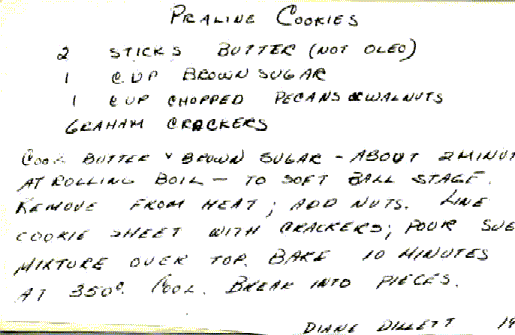 PRALINE COOKIES
2 STICKS BUTTER (NOT OLEO)
1 CUP BROWN SUGAR
1 CUP CHOPPED PECANS & WALNUTS
GRAHAM CRACKERS
COOK BUTTER & BROWN SUGAR - ABOUT 2 MINUT
AT ROLLING BOIL - TO SOFT BALL STAGE.
REMOVE FROM HEAT; ADD NUTS. LINE
COOKIE SHEET WITH CRACKERS; POUR
MIXTURE OVER TOP. BAKE 10 MINUTES
AT 350°. COOL. BREAK INTO PIECES.
DIANE DILLETT